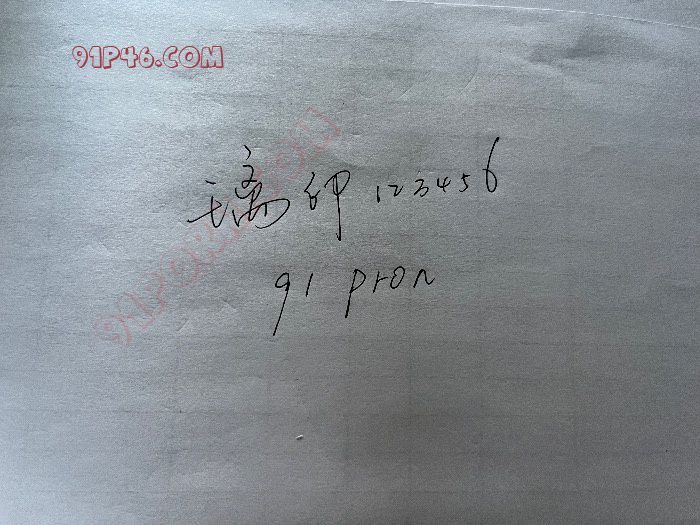 91P46.COM
璃卿123456
91 pron
91PORN.COM